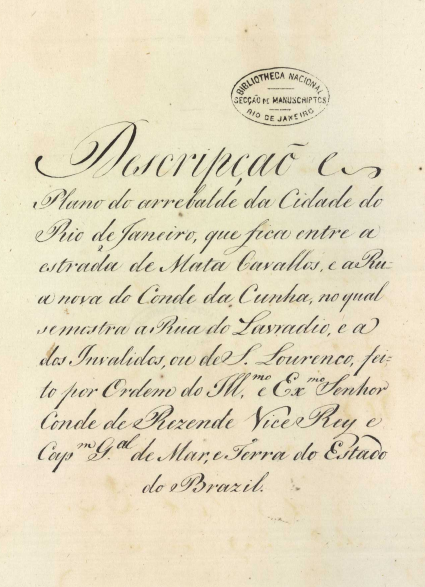 BIBLIOTHECA NACIONAL
SECÇÃO DE MANUSCRIPTOS
RIO DE JANEIRO
Descripçaõ e
Plano do arrebalde da Cidade do
Rio de Janeiro, que fica entre a
estrada de Mata Cavallos, e a Ru-
a nova do Conde da Cunha, no qual
se mostra a Rua do Lavradio, e a
dos Invalidos, ou de S. Lourenco, fei-
to por Ordem do Ill.mo e Ex.mo Senhor
Conde de Rezende Vice Rey e
Cap.m G.al de Mar, e Terra do Estado
do Brazil.